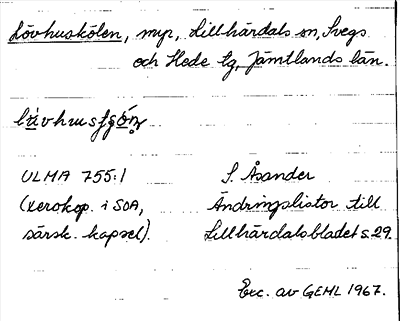 Lövhuskölen, myr, Lillhärdals sn, Svegs
och Hede tg, Jämtlands län.
ULMA 755:1 S. Åsander
(xerokop. i SOA, Ändringslistor till
särsk. kapsel). Lillhärdalsbladet s. 29.
Exc. av GEHL 1967.